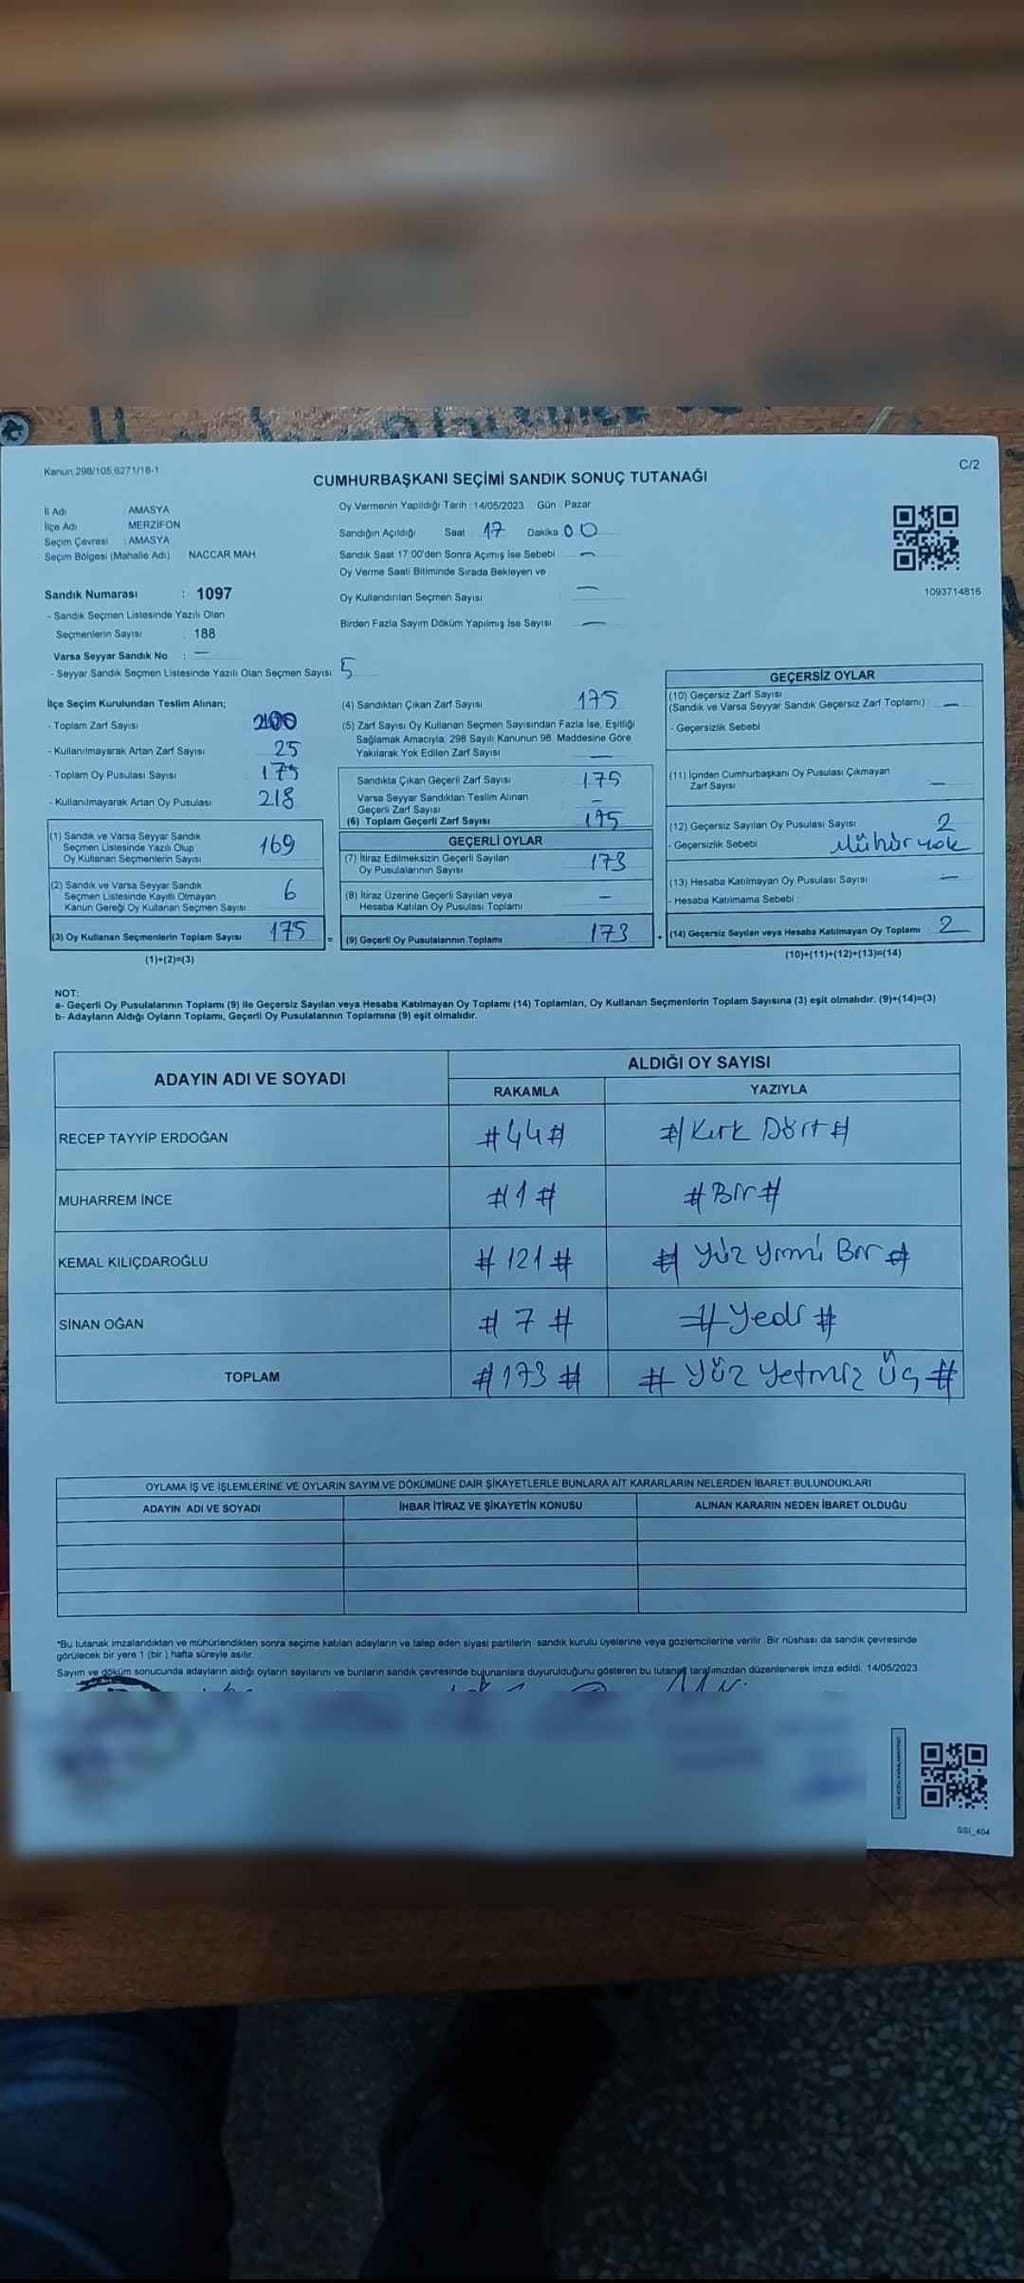 Kanun 298/105,6271/18-1
C/2
CUMHURBAŞKANI SEÇİMİ SANDIK SONUÇ TUTANAĞI
İl Adı AMASYA
İlçe Adı MERZİFON
Seçim Çevresi : AMASYA
Seçim Bölgesi (Mahalle Adı) NACCAR MAH
Oy Vermenin Yapıldığı Tarih : 14/05/2023 Gün : Pazar
Sandığın Açıldığı Saat 17 Dakika 00
Sandık Saat 17:00'den Sonra Açımış İse Sebebi —
Oy Verme Saati Bitiminde Sırada Bekleyen ve
Oy Kullandırılan Seçmen Sayısı —
Birden Fazla Sayım Döküm Yapılmış İse Sayısı —
1093714816
Sandık Numarası : 1097
- Sandık Seçmen Listesinde Yazılı Olan
Seçmenlerin Sayısı : 188
Varsa Seyyar Sandık No : —
- Seyyar Sandık Seçmen Listesinde Yazılı Olan Seçmen Sayısı 5
İlçe Seçim Kurulundan Teslim Alınan;
- Toplam Zarf Sayısı
- Kullanılmayarak Artan Zarf Sayısı 25
- Toplam Oy Pusulası Sayısı 175
- Kullanılmayarak Artan Oy Pusulası 218
(1) Sandık ve Varsa Seyyar Sandık
Seçmen Listesinde Yazılı Olup
Oy Kullanan Seçmenlerin Sayısı 169
(2) Sandık ve Varsa Seyyar Sandık
Seçmen Listesinde Kayıtlı Olmayan
Kanun Gereği Oy Kullanan Seçmen Sayısı 6
(3) Oy Kullanan Seçmenlerin Toplam Sayısı 175
(1)+(2)=(3)
(4) Sandıktan Çıkan Zarf Sayısı 175
(5) Zarf Sayısı Oy Kullanan Seçmen Sayısından Fazla İse, Eşitliği
Sağlamak Amacıyla, 298 Sayılı Kanunun 98. Maddesine Göre
Yakılarak Yok Edilen Zarf Sayısı —
Sandıkta Çıkan Geçerli Zarf Sayısı 175
Varsa Seyyar Sandıktan Teslim Alınan
Geçerli Zarf Sayısı —
(6) Toplam Geçerli Zarf Sayısı 175
GEÇERLİ OYLAR
(7) İtiraz Edilmeksizin Geçerli Sayılan
Oy Pusulalarının Sayısı 173
(8) İtiraz Üzerine Geçerli Sayılan veya
Hesaba Katılan Oy Pusulası Toplamı —
= (9) Geçerli Oy Pusulalarının Toplamı 173
GEÇERSİZ OYLAR
(10) Geçersiz Zarf Sayısı
(Sandık ve Varsa Seyyar Sandık Geçersiz Zarf Toplamı) —
- Geçersizlik Sebebi
(11) İçinden Cumhurbaşkanı Oy Pusulası Çıkmayan
Zarf Sayısı —
(12) Geçersiz Sayılan Oy Pusulası Sayısı 2
- Geçersizlik Sebebi Mühür yok
(13) Hesaba Katılmayan Oy Pusulası Sayısı —
- Hesaba Katılmama Sebebi
+ (14) Geçersiz Sayılan veya Hesaba Katılmayan Oy Toplamı 2
(10)+(11)+(12)+(13)=(14)
NOT:
a- Geçerli Oy Pusulalarının Toplamı (9) ile Geçersiz Sayılan veya Hesaba Katılmayan Oy Toplamı (14) Toplamları, Oy Kullanan Seçmenlerin Toplam Sayısına (3) eşit olmalıdır. (9)+(14)=(3)
b- Adayların Aldığı Oyların Toplamı, Geçerli Oy Pusulalarının Toplamına (9) eşit olmalıdır.
ADAYIN ADI VE SOYADI
ALDIĞI OY SAYISI
RAKAMLA YAZIYLA
RECEP TAYYİP ERDOĞAN #44# #Kırk Dört#
MUHARREM İNCE #1# #Bir#
KEMAL KILIÇDAROĞLU #121# #Yüz Yirmi Bir#
SİNAN OĞAN #7# #Yedi#
TOPLAM #173# #Yüz Yetmiz Üç#
OYLAMA İŞ VE İŞLEMLERİNE VE OYLARIN SAYIM VE DÖKÜMÜNE DAİR ŞİKAYETLERLE BUNLARA AİT KARARLARIN NELERDEN İBARET BULUNDUKLARI
ADAYIN ADI VE SOYADI İHBAR İTİRAZ VE ŞİKAYETİN KONUSU ALINAN KARARIN NEDEN İBARET OLDUĞU
*Bu tutanak imzalandıktan ve mühürlendikten sonra seçime katılan adayların ve talep eden siyasi partilerin sandık kurulu üyelerine veya gözlemcilerine verilir. Bir nüshası da sandık çevresinde
görülecek bir yere 1 (bir ) hafta süreyle asılır.
Sayım ve döküm sonucunda adayların aldığı oyların sayılarını ve bunların sandık çevresinde bulunanlara duyurulduğunu gösteren bu tutanak tarafımızdan düzenlenerek imza edildi. 14/05/2023
SSI_404